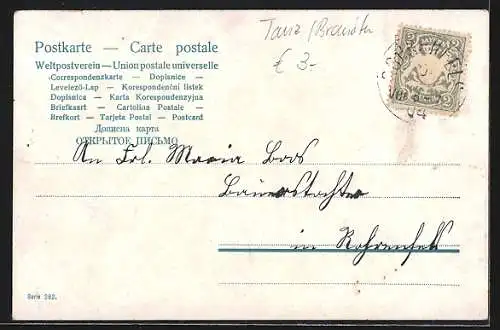 Tanz /
€ 3-
Postkarte — Carte postale
Weltpostverein — Union postale universelle
Correspondenzkarte — Dopisnice —
Levelező-Lap — Korespondenční listek
Dopisnica — Karta Korespondenzyjna
Briefkaart — Cartolina Postale —
Brefkort — Tarjeta Postal — Postcard
Дописна карта
ОТКРЫТОЕ ПИСЬМО
An Frl. Maria Boos
Bauerstochter
in Rohrenfels
Serie 282.